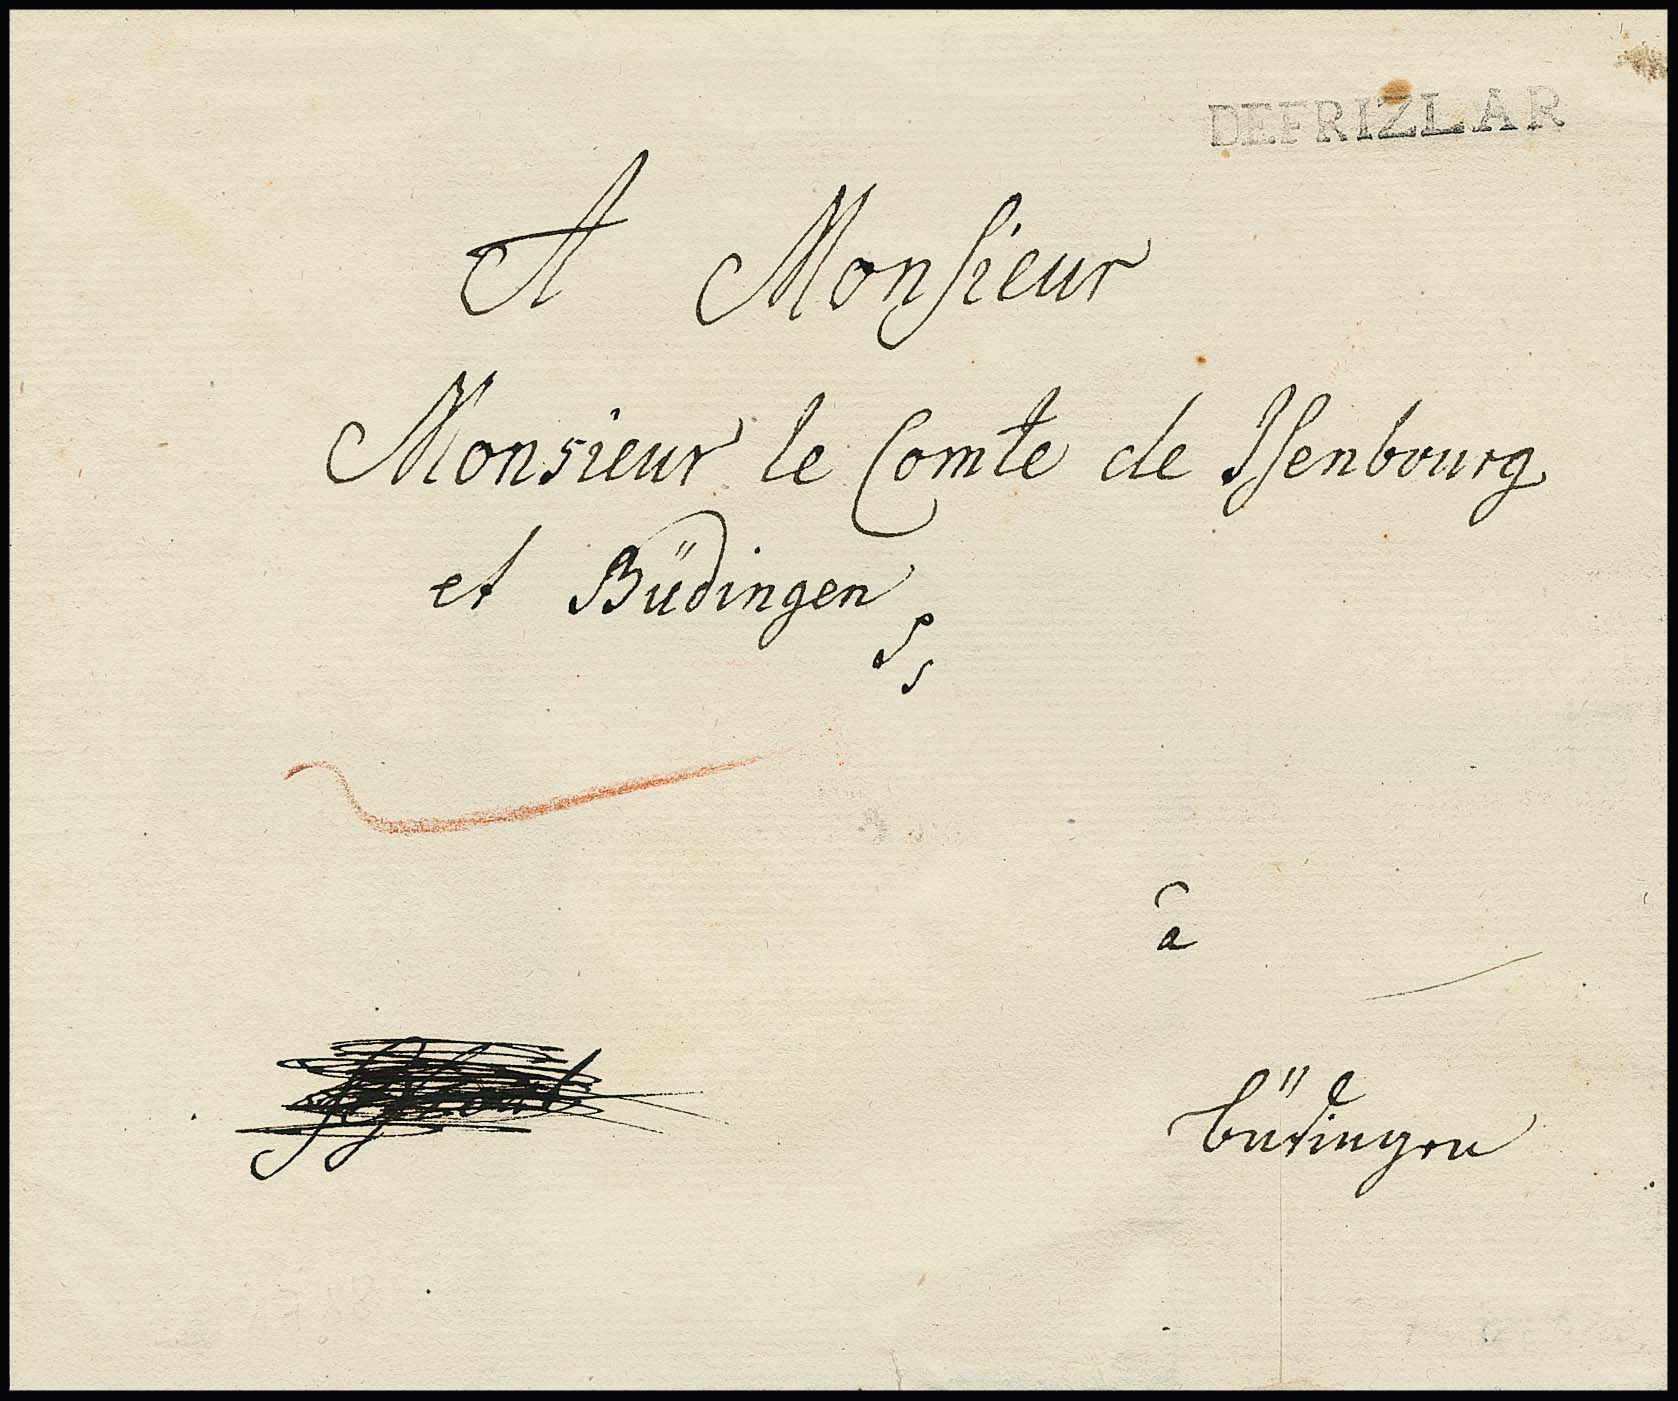 DE FRIZLAR
A Monsieur
Monsieur le Comte de Isenbourg
et Büdingen
â
büdingen